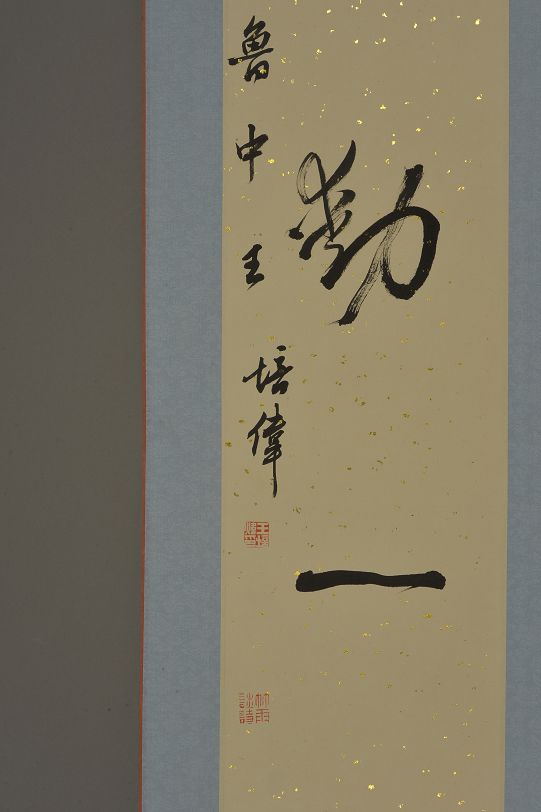 勤一
魯中王培偉